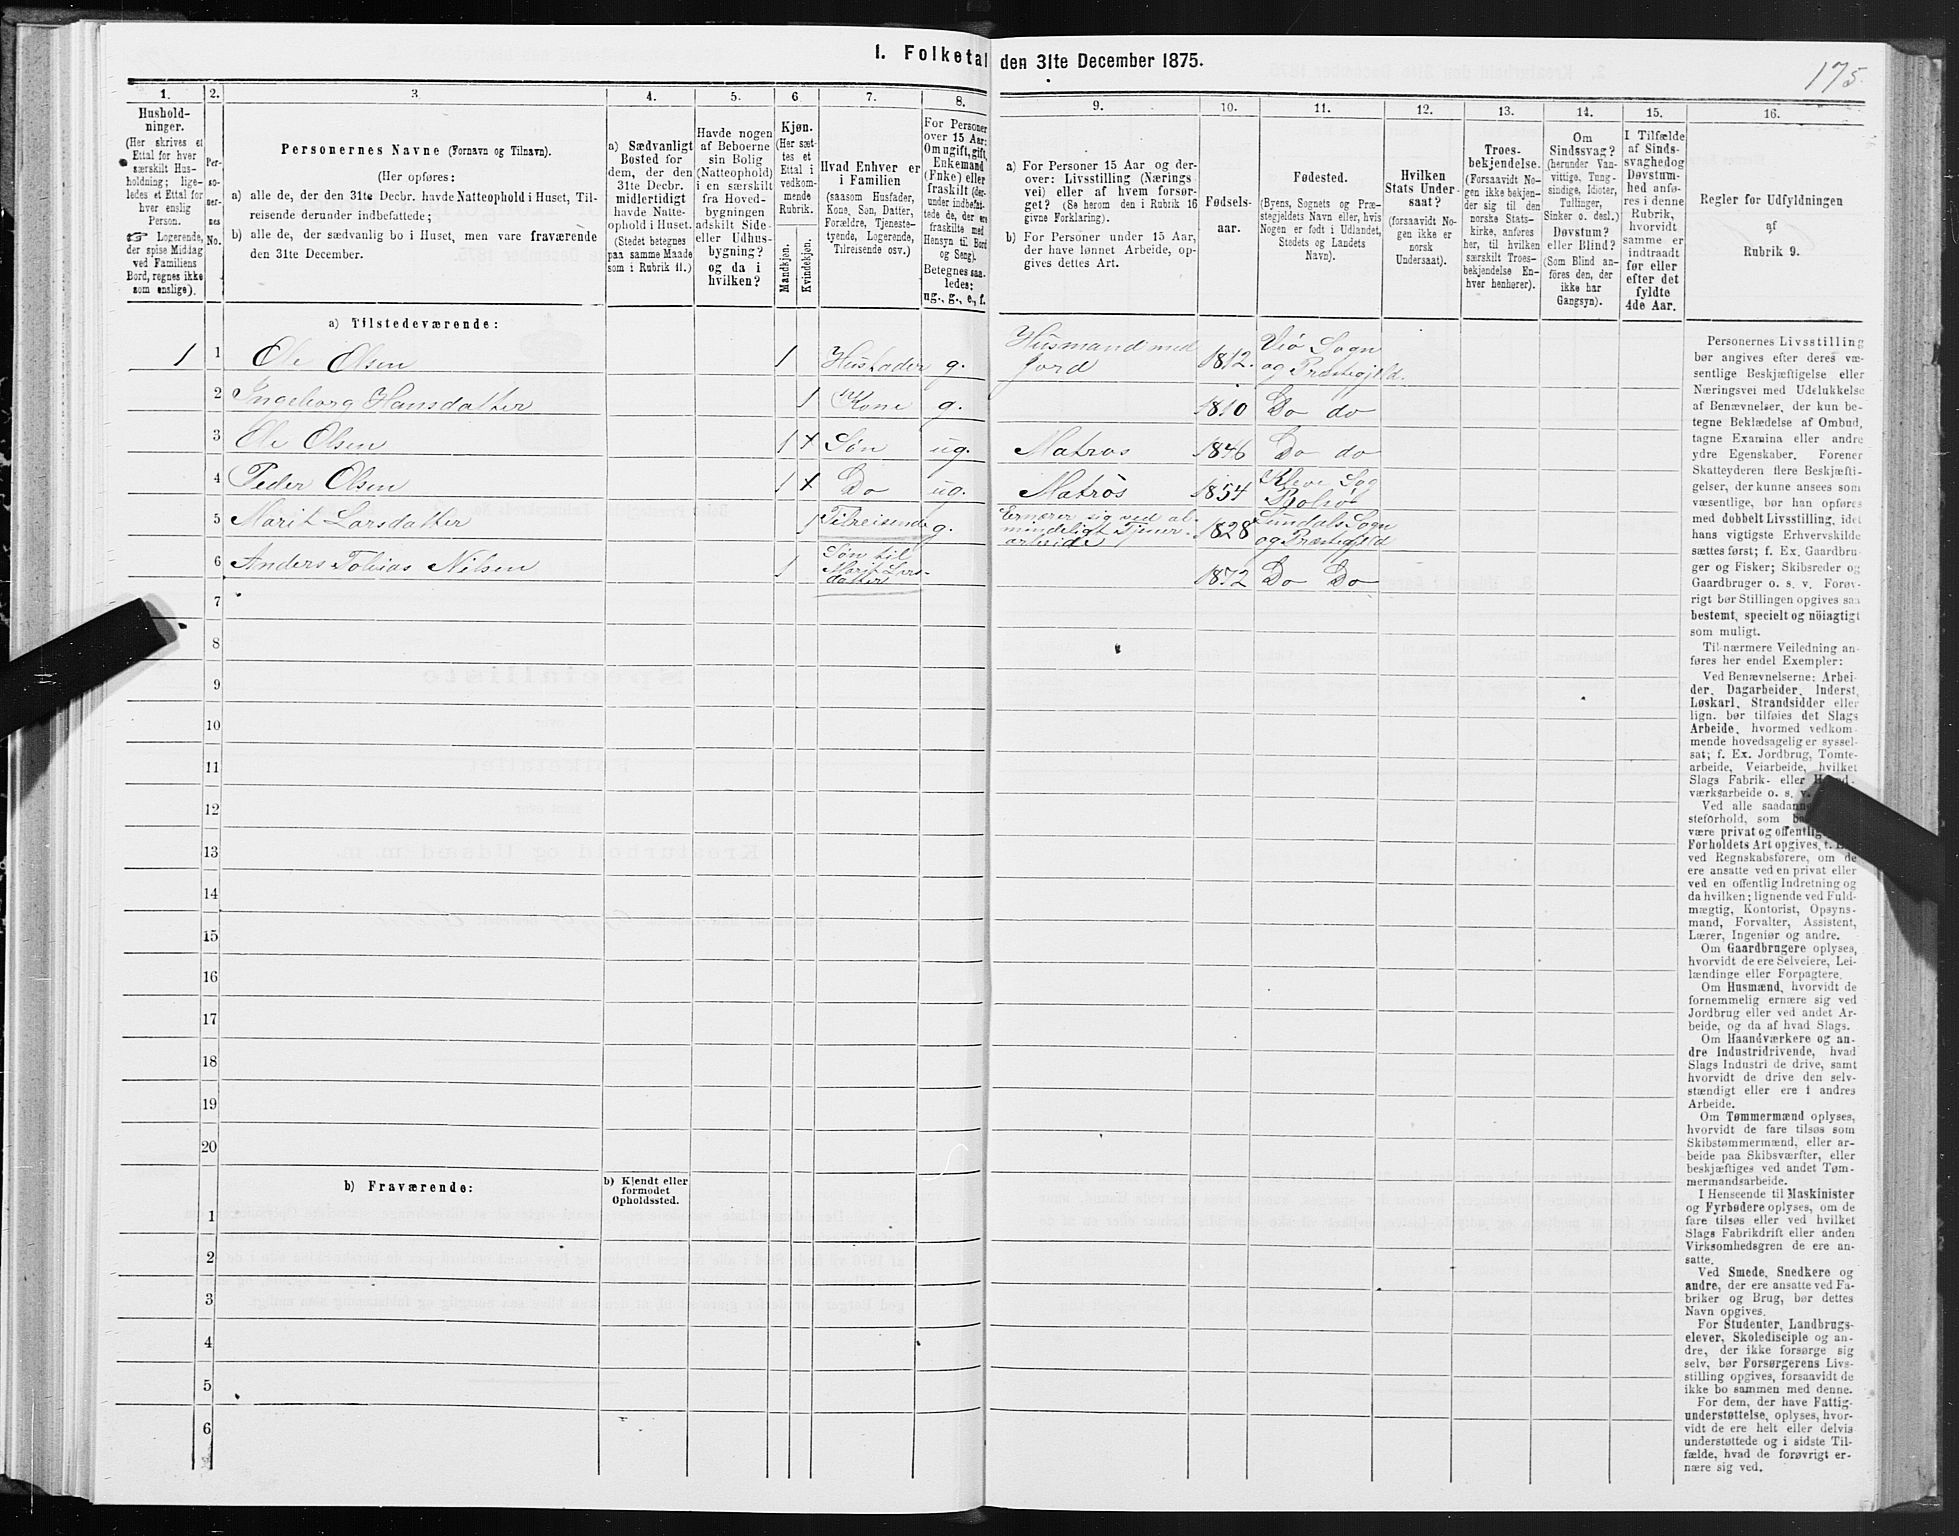 I. Folketal den 31te December 1875.
175
1.
2.
3.
4.
5.
6.
7.
8.
9.
10.
11.
12.
13.
14.
15.
16.
Hushold-
ninger.
(Her skrives et
Ettal for hver
særskilt Hus-
holdning; lige-
ledes et Ettal for
hver enslig
Person.
☞ Logerende,
der spise Middag
ved Familiens
Bord, regnes ikke
som enslige).
Per-
so-
ner-
nes
No.
Personernes Navne (Fornavn og Tilnavn).
(Her opføres:
a) alle de, der den 31te Decbr. havde Natteophold i Huset, Til-
reisende derunder indbefattede;
b) alle de, der sædvanlig bo i Huset, men vare fraværende
den 31te December.
a) Sædvanligt
Bosted for
dem, der den
31te Decbr.
midlertidigt
havde Natte-
ophold i Huset.
(Stedet betegnes
paa samme Maade
som i Rubrik 11.)
Havde nogen
af Beboerne
sin Bolig
(Natteophold)
i en særskilt
fra Hoved-
bygningen
adskilt Side-
eller Udhus-
bygning?
og da i
hvilken?
Kjøn.
(Her sæt-
tes et
Ettal i
vedkom-
mende
Rubrik.
Mandkjøn.
Kvindekjøn.
Hvad Enhver er
i Familien
(saasom Husfader,
Kone, Søn, Datter,
Forældre, Tjeneste-
tyende, Logerende,
Tilreisende osv.)
For Personer
over 15 Aar:
Om ugift, gift,
Enkemand
(Enke) eller
fraskilt (der-
under indbefat-
tede de, der ere
fraskilte med
Hensyn til Bord
og Seng).
Betegnes saa-
ledes:
ug., g., e., f.
a) For Personer 15 Aar og der-
over: Livsstilling (Nærings-
vei) eller af hvem forsør-
get? (Se herom den i Rubrik 16
givne Forklaring).
b) For Personer under 15 Aar,
der have lønnet Arbeide, op-
gives dettes Art.
Fødsels-
aar.
Fødested.
(Byens, Sognets og Præ-
stegjeldets Navn eller, hvis
Nogen er født i Udlandet,
Stedets og Landets
Navn).
Hvilken
Stats Under-
saat?
(forsaavidt No-
gen ikke er
norsk
Undersaat).
Troes-
bekjendelse.
(Forsaavidt No-
gen ikke bekjen-
der sig til den
norske Stats-
kirke, anføres
her, til hvilken
særskilt Troes-
bekjendelse En-
hver henhører).
Om
Sindssvag?
(herunder Van-
vittige, Tung-
sindige, Idioter,
Tullinger,
Sinker o. desl.)
Døvstum?
eller Blind?
(Som Blind an-
føres den, der
ikke har
Gangsyn).
I Tilfælde
af Sinds-
svaghed og
Døvstum-
hed anfø-
res i denne
Rubrik,
hvorvidt
samme er
indtraadt
før eller
efter det
fyldte
4de Aar.
Regler for Udfyldningen
af
Rubrik 9.
a) Tilstedeværende:
1 1 Ole Olsen 1 Husfader g. Husmand med Jord 1812. Veø Sogn og Præstegjeld.
2 Ingeborg Hansdatter 1 Kone g. 1810 Do do
3 Ole Olsen 1 Søn ug. Matros 1846 Do do
4 Peder Olsen 1 Do ug. Matros 1854 Kleve Sog Bolsø
5 Marit Larsdatter 1 Tilreisende g. Ernærer sig ved al-mindeligt Tjener-arbeide 1828 Sundals Sogn og Præstegjeld
6 Anders Tobias Nilsen 1 Søn til Marit Lars-datter 1872 Do Do
7
8
9
10
11
12
13
14
15
16
17
18
19
20
b) Fraværende:
b) Kjendt eller
formodet
Opholdssted.
1
2
3
4
5
6
Personernes Livsstilling
bør angives efter deres væ-
sentlige Beskjæftigelse eller
Næringsvei med Udelukkelse
af Benævnelser, der kun be-
tegne Beklædelse af Ombud,
tagne Examina eller andre
ydre Egenskaber. Forener
Skatteyderen flere Beskjæfti-
gelser, der kunne ansees som
væsentlige, bør han opføres
med dobbelt Livsstilling, idet
hans vigtigste Erhvervskilde
sættes først; f. Ex. Gaardbru-
ger og Fisker; Skibsreder og
Gaardbruger o. s. v. Forøv-
rigt bør Stillingen opgives saa
bestemt, specielt og nöiagtigt
som muligt.
Til nærmere Veiledning an-
føres her endel Exempler:
Ved Benævnelserne: Arbei-
der, Dagarbeider, Inderst,
Løskarl, Strandsidder eller
lign. bør tilføies det Slags
Arbeide, hvormed vedkom-
mende hovedsagelig er syssel-
sat; f. Ex. Jordbrug, Tomte-
arbeide, Veiarbeide, hvilket
Slags Fabrik- eller
værksarbeide o. s. v.
Ved alle saadanne
steforhold, som
være privat og offentlig
Forholdets Art opgives,
ved Regnskabsførere, om de
ere ansatte ved en privat eller
ved en offentlig Indretning og
da hvilken; lignende ved Fuld-
mægtig, Kontorist, Opsyns-
mand, Forvalter, Assistent,
Lærer, Ingeniør og andre.
Om Gaardbrugere oplyses,
hvorvidt de ere Selveiere, Lei-
lændinge eller Forpagtere.
Om Husmænd, hvorvidt de
fornemmelig ernære sig ved
Jordbrug eller ved andet Ar-
beide, og da af hvad Slags.
Om Haandværkere og an-
dre Industridrivende, hvad
Slags Industri de drive, samt
hvorvidt de drive den selv-
stændigt eller ere i andres
Arbeide.
Om Tømmermænd oplyses,
hvorvidt de fare tilsøs som
Skibstømmermænd, eller ar-
beide paa Skibsværfter, eller
beskjæftiges ved andet Tøm-
mermandsarbeide.
I Henseende til Maskinister
og Fyrbødere oplyses, om de
fare tilsøs eller ved hvilket
Slags Fabrikdrift eller anden
Virksomhedsgren de ere an-
satte.
Ved Smede, Snedkere og
andre, der ere ansatte ved Fa-
briker og Brug, bør dettes
Navn opgives.
For Studenter, Landbrugs-
elever, Skoledisciple og an-
dre, der ikke forsørge sig
selv, bør Forsørgerens Livs-
stilling opgives, forsaavidt de
ikke bo sammen med denne.
For dem, der have Fattig-
understøttelse, oplyses, hvor-
vidt de ere helt eller delvis
understøttede og i sidste Til-
fælde, hvad de forøvrigt er-
nære sig ved.